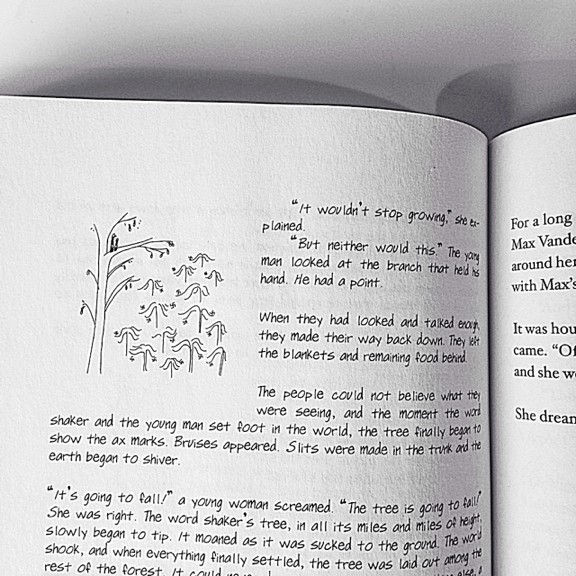 "It wouldn't stop growing," she ex-
plained.
"But neither would this." The young
man looked at the branch that held his
hand. He had a point.
When they had looked and talked enough,
they made their way back down. They left
the blankets and remaining food behind.
The people could not believe what they
were seeing, and the moment the word
shaker and the young man set foot in the world, the tree finally began to
show the ax marks. Bruises appeared. Slits were made in the trunk and the
earth began to shiver.
"It's going to fall!" a young woman screamed. "The tree is going to fall!"
She was right. The word shaker's tree, in all its miles and miles of height,
slowly began to tip. It moaned as it was sucked to the ground. The world
shook, and when everything finally settled, the tree was laid out among the
rest of the forest. It could
For a long
Max Vande
around her
with Max's
It was hou
came. "Of
and she wo
She dream